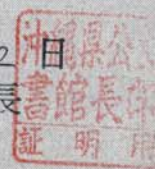 日
長
沖縄県公文
書館長印
証明用